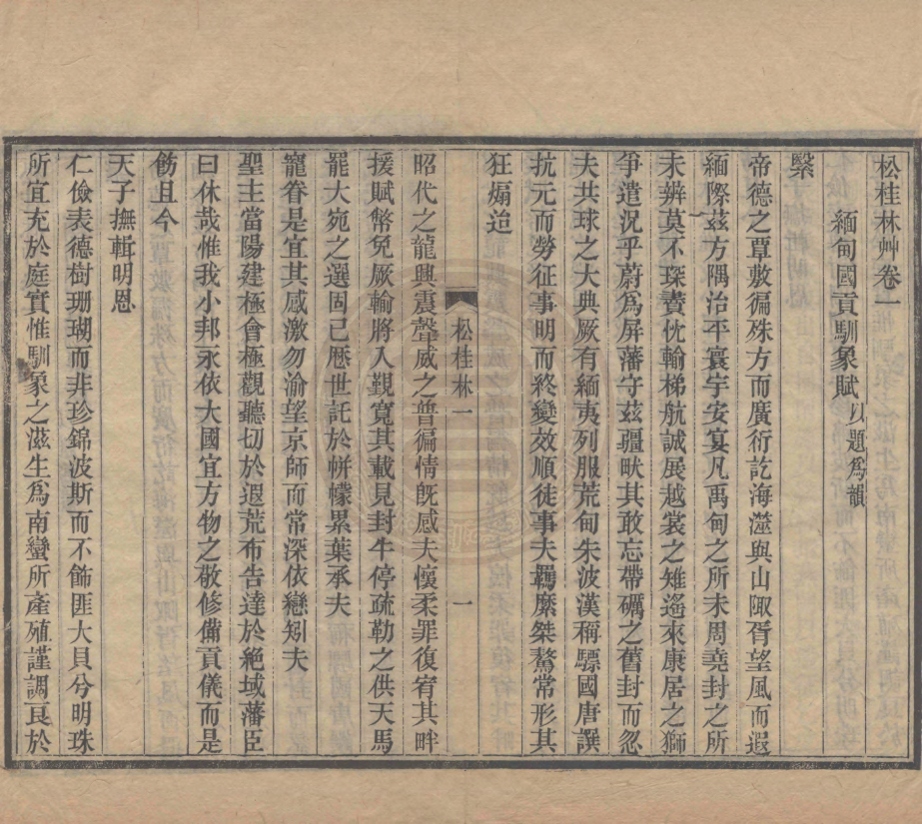 松桂林艸卷一
緬甸國貢馴象賦以題爲韻
繄
帝德之覃敷徧殊方而廣衍訖海澨與山陬胥望風而遐
緬際茲方隅治平寰宇安宴凡禹甸之所未周堯封之所
未辨莫不琛賮忱輸梯航誠展越裳之雉遙來康居之獅
爭遣況乎蔚爲屏藩守茲疆畎其敢忘帶礪之舊封而忽
夫共球之大典厥有緬夷列服荒甸朱波漢稱驃國唐譔
抗元而勞征事明而終變效順徒事夫羈縻桀驁常形其
狂煽迨
松桂林一 一
昭代之龍興震聲威之普徧情旣感夫懷柔罪復宥其畔
援賦幣免厥輸將人覲寬其載見封牛停疏勒之供天馬
罷大宛之選固已歷世託於帡幪累葉承夫
寵眷是宜其感激勿渝望京師而常深依戀矧夫
聖主當陽建極會極觀聽切於遐荒布告達於絶域藩臣
曰休哉惟我小邦永依大國宜方物之敬修備貢儀而是
飭且今
天子撫輯明恩
仁儉表德樹珊瑚而非珍錦波斯而不飾匪大貝兮明珠
所宜充於庭實惟馴象之滋生爲南蠻所產殖謹調良於